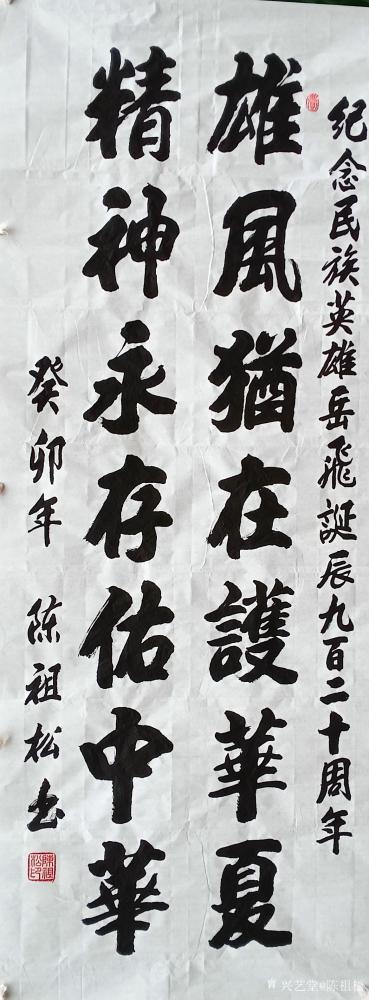 纪念民族英雄岳飛誕辰九百二十周年
雄風猶在護華夏
精神永存佑中華
癸卯年 陈祖松书
兴艺堂@陈祖松